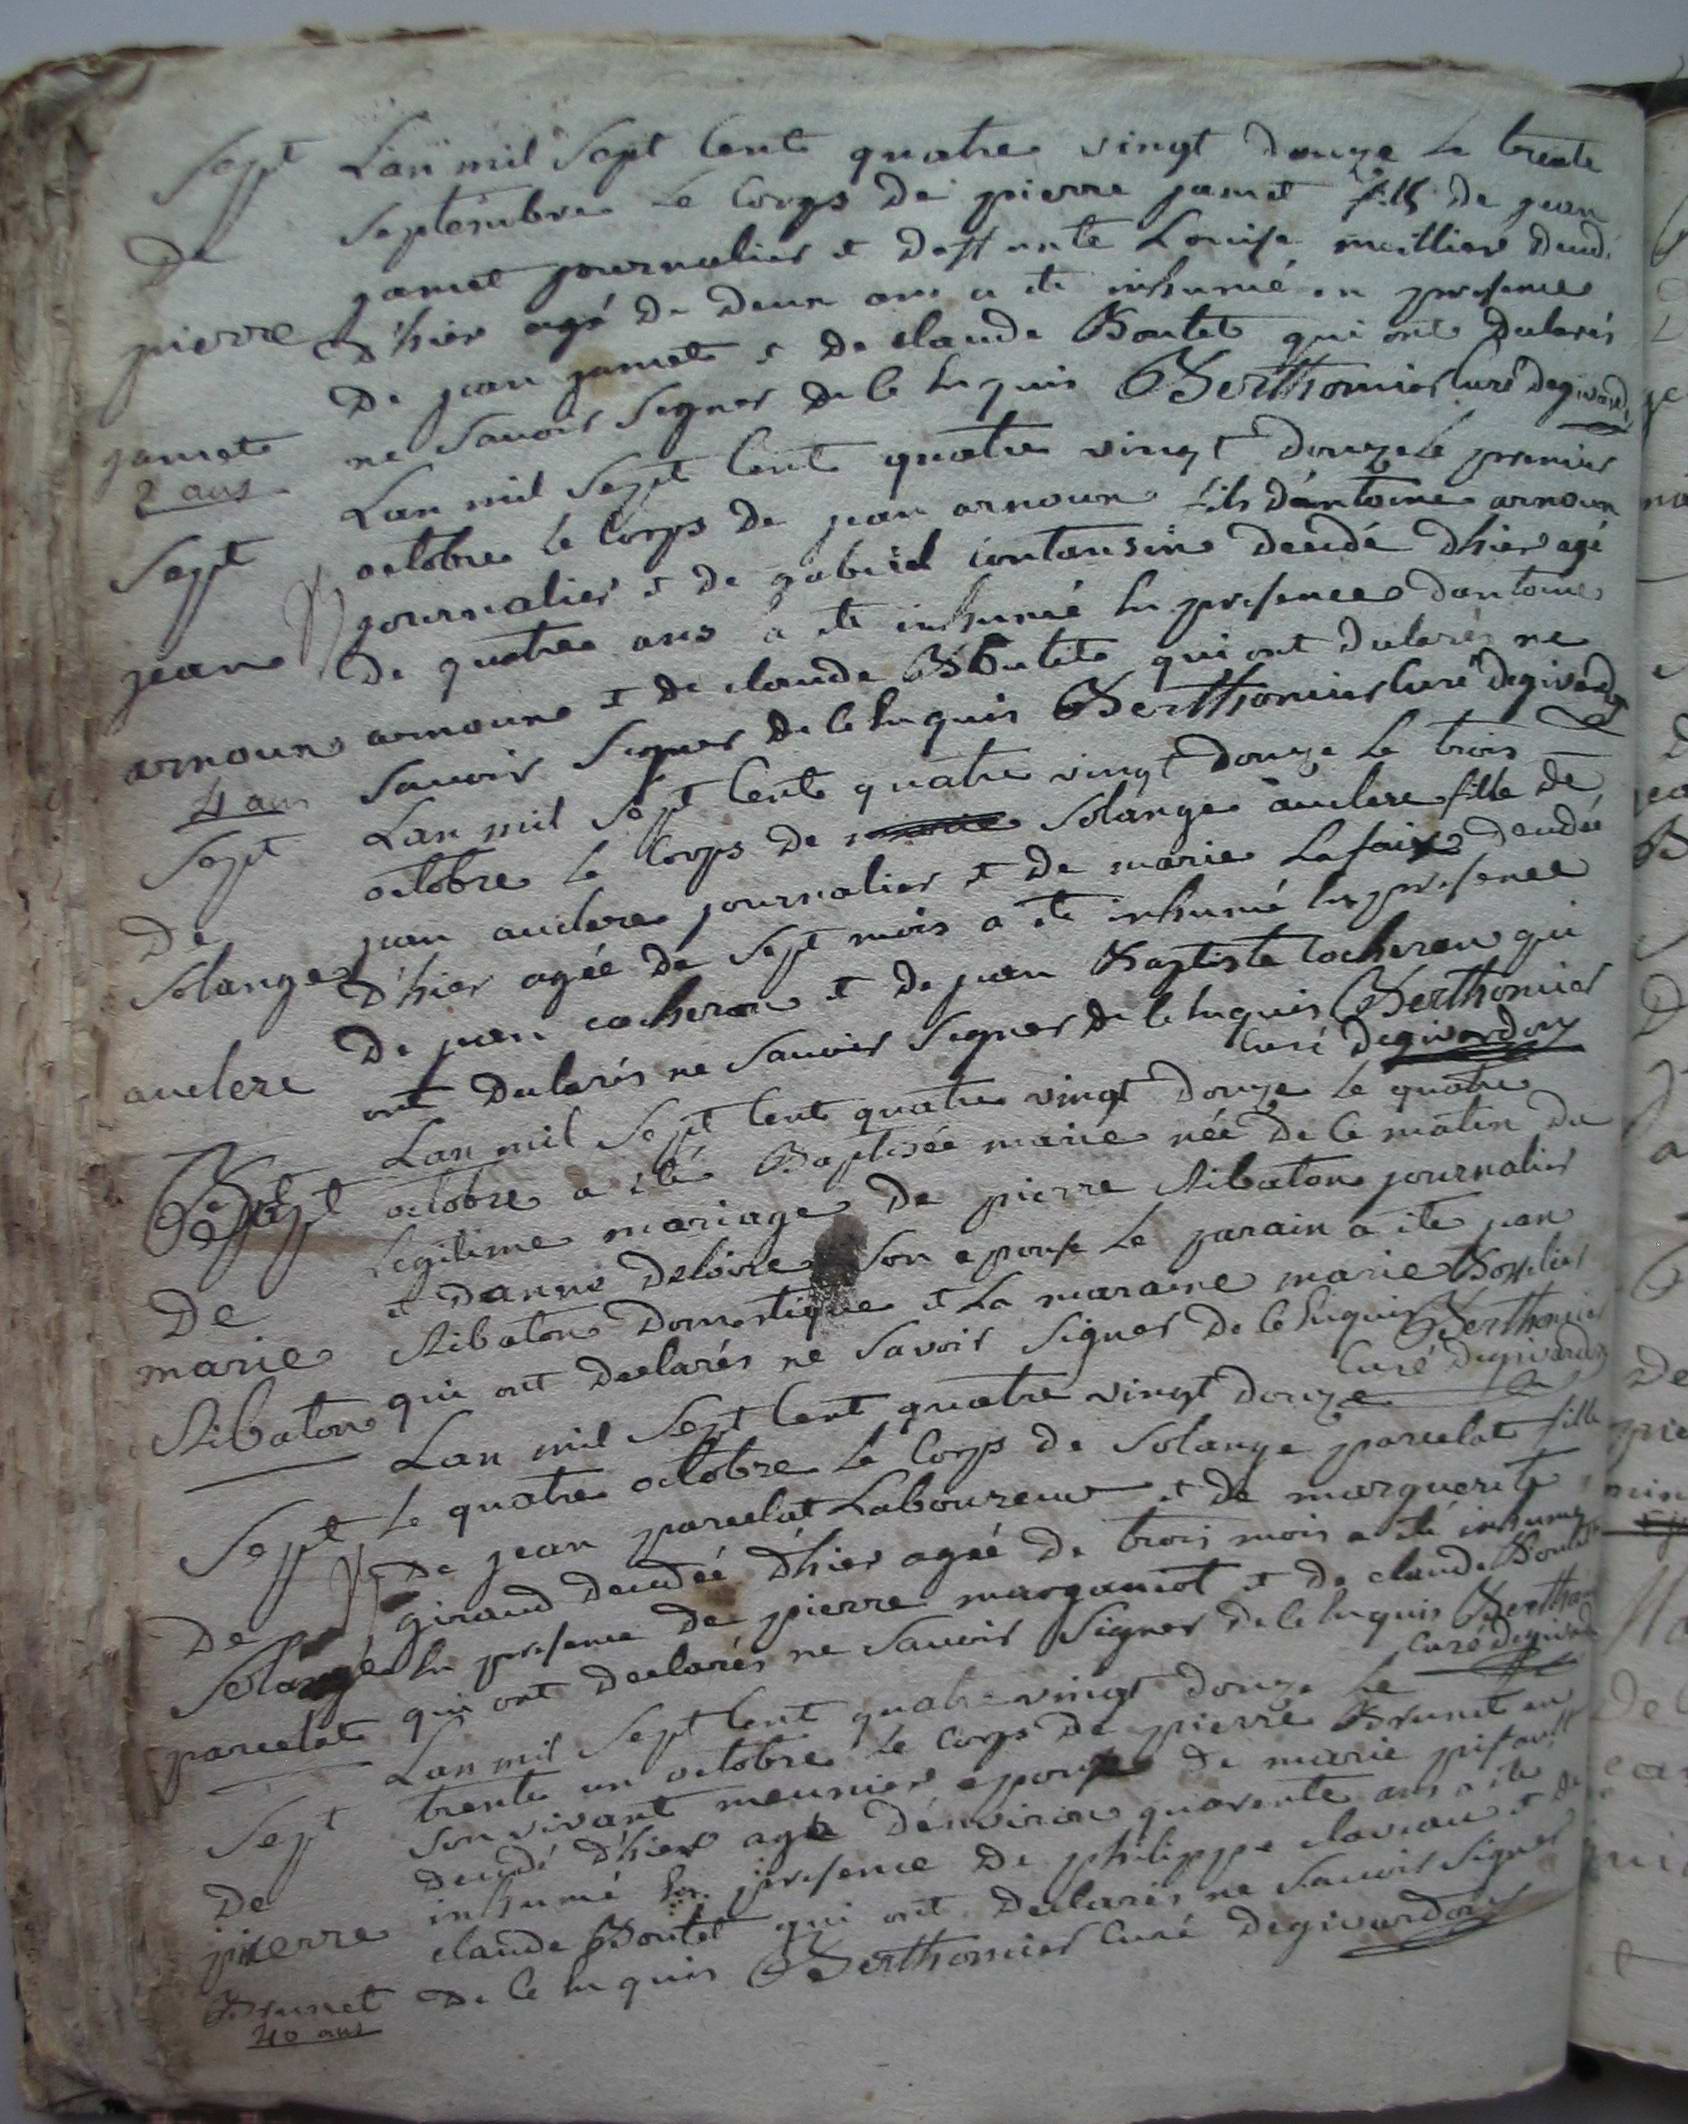 Sept
De
pierre
jamet
2 ans
L'an mil Sept Cent quatre vingt douze Le trente
Septembre Le Corps De pierre jamet fils De jean
jamet journalier et Deffunte Louise meillier Décdé
D'hier agé De Deux ans a ete inhumé en presence
De jean jamet et De claude Boutet qui ont Déclarés
ne Savoir Signer De le Enquis Berthomier Curé Degivardon
Sept
jean
arnoux
4 ans
Lan mil Sept Cent quatre vingt Douze Le premier
octobre Le Corps De jean arnoux fils D'antoine arnoux
journalier et De gabriel contansin Decedé D'hier agé
De quatre ans a ete inhumé En presence Dantoine
arnoux et De claude Boutet qui ont Declarés ne
Savoir Signer De le Enquis Berthomier Curé Degivardon
Sept
De
Solange
auclere
Lan mil Sept Cent quatre vingt Douze Le trois
octobre Le Corps De marie Solange auclere fille De
jean auclere journalier et De marie Lafaix Decedée
D'hier agée De Sept mois a ete inhumé En presence
De jean cocherau et De jean Baptiste Cocherau qui
ont Declarés ne Savoir Signer De le Enquis Berthomier
Curé Degivardon
Bapt
De
marie
Ribaton
Lan mil Sept Cent quatre vingt Douze Le quatre
octobre a été Baptisée marie née De ce matin Du
Legitime mariage De pierre Ribaton journalier
et Danne Deloire Son epouse Le parain a ete jean
Ribaton Domestique et La maraine marie
qui ont Declarés ne Savoir Signer De le Enquis Berthomier
Curé Degivardon
Sept
De
Solange
parcelat
Lan mil Sept Cent quatre vingt Douze
Le quatre octobre Le Corps De Solange parcelat fille
De jean parcelat Laboureur et De marguerite
giraud Decedée D'hier agée De trois mois a été inhumé
En presence De pierre margamot et De claude Boutet
qui ont Declarés ne Savoir Signer De le Enquis Berthomier
Curé Degivardon
Sept
De
pierre
Brunet
40 ans
Lan mil Sept Cent quatre vingt Douze Le
trente un octobre Le Corps De pierre Brunet en
Son vivant meunier epoux De marie
Decedé D'hier agé D'environ quarente ans a ete
inhumé En presence De philippe claveau et De
claude Boutet qui ont Declarés ne Savoir Signer
De le Enquis Berthomier Curé Degivardon